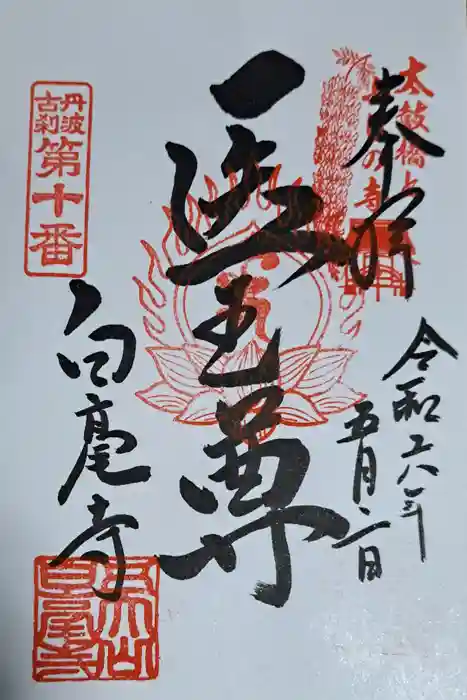 太鼓橋と
の寺
奉拝
令和六年
五月三日
医王尊
丹波
古刹
第十番
白毫寺
五大山
白毫寺